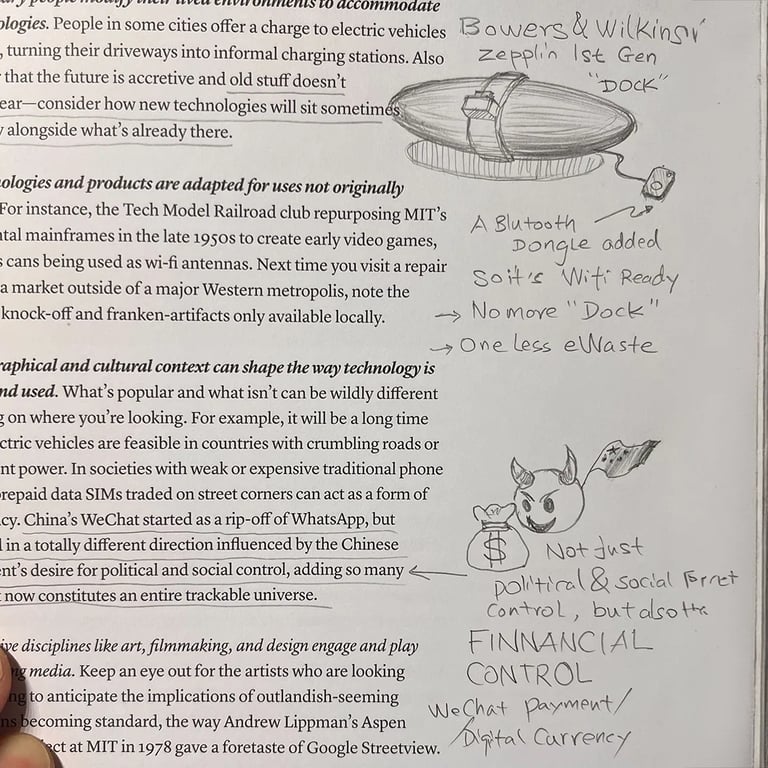 people modify their lived environments to accommodate
ologies. People in some cities offer a charge to electric vehicles
, turning their driveways into informal charging stations. Also
that the future is accretive and old stuff doesn't
ear—consider how new technologies will sit sometimes
y alongside what's already there.
ologies and products are adapted for uses not originally
For instance, the Tech Model Railroad club repurposing MIT's
tal mainframes in the late 1950s to create early video games,
s cans being used as wi-fi antennas. Next time you visit a repair
a market outside of a major Western metropolis, note the
knock-off and franken-artifacts only available locally.
raphical and cultural context can shape the way technology is
nd used. What's popular and what isn't can be wildly different
g on where you're looking. For example, it will be a long time
ctric vehicles are feasible in countries with crumbling roads or
nt power. In societies with weak or expensive traditional phone
prepaid data SIMs traded on street corners can act as a form of
cy. China's WeChat started as a rip-off of WhatsApp, but
l in a totally different direction influenced by the Chinese
ent's desire for political and social control, adding so many
now constitutes an entire trackable universe.
ive disciplines like art, filmmaking, and design engage and play
ng media. Keep an eye out for the artists who are looking
ng to anticipate the implications of outlandish-seeming
ns becoming standard, the way Andrew Lippman's Aspen
ect at MIT in 1978 gave a foretaste of Google Streetview.
Bowers & Wilkins
Zepplin 1st Gen
"DOCK"
A Blutooth
Dongle added
So it's Wifi Ready
→ No more "Dock"
→ One less eWaste
$
Not Just
political & social
control, but also
FINNANCIAL
CONTROL
WeChat payment/
/Digital Currency